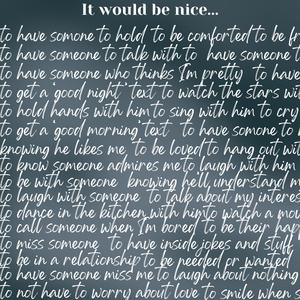 It would be nice...
to have somone to hold to be comforted to be fr
to have someone to talk with to have someone t
to have someone who thinks I'm pretty to have
to get a 'good night' text to watch the stars wi
to hold hands with him to sing with him to cry
to get a good morning text to have somone to a
knowing he likes me to be loved to hang out wit
to know someone admires me to laugh with him
to be with someone knowing hell understand m
to laugh with someone to talk about my interes
to dance in the kitchen with him to watch a mov
to call someone when I'm bored to be their hap
to miss someone to have inside jokes and stuff
to be in a relationship to be needed or wanted
to have someone miss me to laugh about nothing
to not have to worry about love to smile when